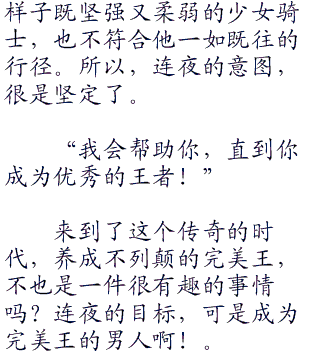 样子既坚强又柔弱的少女骑
士，也不符合他一如既往的
行径。所以，连夜的意图，
很是坚定了。
“我会帮助你，直到你
成为优秀的王者！”
来到了这个传奇的时
代，养成不列颠的完美王，
不也是一件很有趣的事情
吗？连夜的目标，可是成为
完美王的男人啊！。